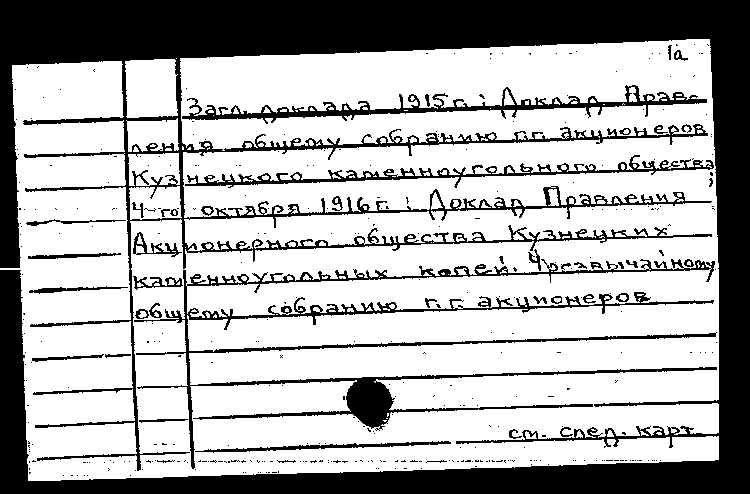 1а
Загл. доклада 1915 г.: Доклад Прав-
ления общему собранию г.г. акционеров
Кузнецкого каменноугольного общества;
4-го октября 1916 г.: Доклад Правления
Акционерного общества Кузнецких
каменноугольных копей. Чрезвычайному
общему собранию г.г. акционеров
см. след. карт.